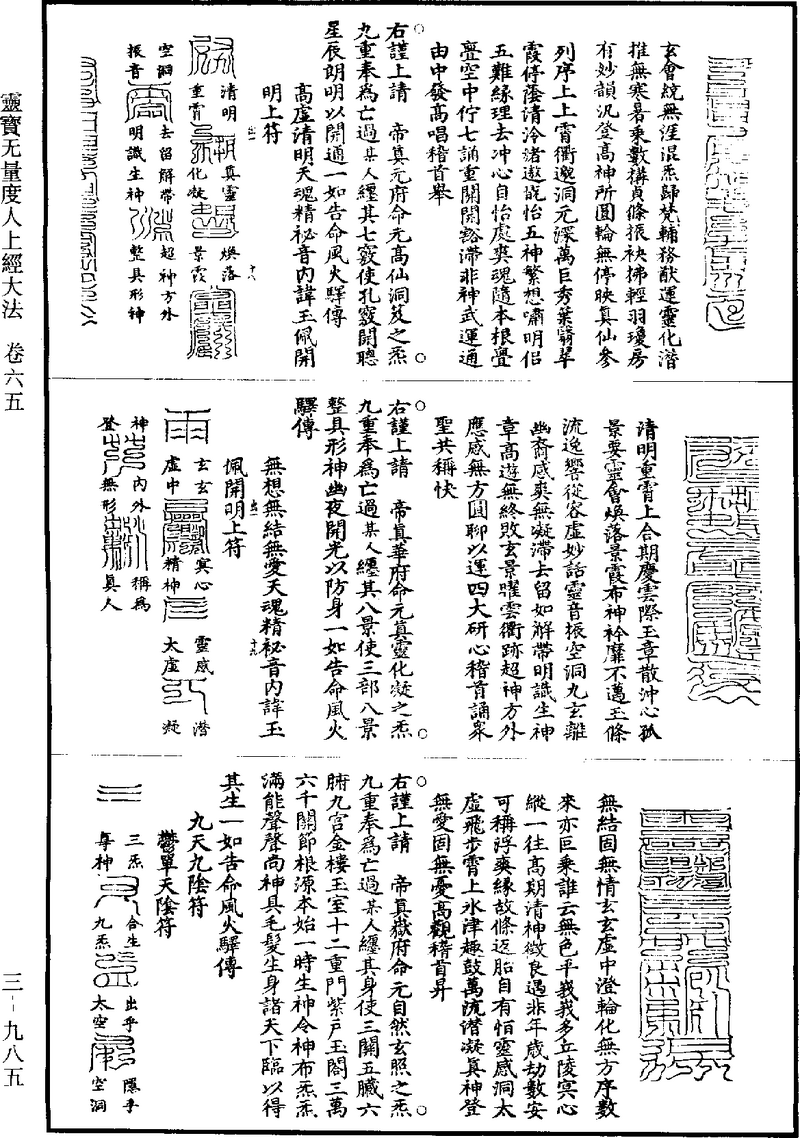 玄會統無涯混炁歸梵輔務猷運靈化潛
推無寒暑乘數構貞條振袂拂輕羽瓊房
有妙韻汎登高神所圓輪無停映真仙參
列序上上霄衢邈洞元深萬巨秀葉翳翠
霞停蔭清泠渚遨翫怡五神繁想嘯明侶
五難緣理去冲心自怡處爽魂隨本根亹
亹空中佇七誦重關開豁滯非神武運通
由中發高唱稽首舉
○右謹上請　帝真元府命元高仙洞笈之炁○
九重奉為亡過某人纏其七竅使孔竅開聰
星辰朗明以開通一如告命風火驛傳
高虛清明天魂精祕音內諱玉佩開
明上符
清明　真靈　煥落
重霄　化凝　景霞
空洞　去留解帶　超神方外
振音　明識生神　整具形神
清明重霄上合期慶雲際玉章散沖心孤
景要靈會煥落景霞布神衿靡不邁玉條
流逸響從容虛妙話靈音振空洞九玄離
幽裔感爽無凝滯去留如解帶明識生神
章高遊無終敗玄景曜雲衢跡超神方外
應感無方圓聊以運四大研心稽首誦眾
聖共稱快
○右謹上請　帝真華府命元真靈化凝之炁○
九重奉為亡過某人纏其八景使三部八景
整具形神幽夜開光以防身一如告命風火
驛傳
無想無結無愛天魂精祕音內諱玉
佩開明上符
玄玄　冥心　靈感　潛
虛中　精神　太虛　凝
神　內外　稱為
登　無形　真人
無結固無情玄玄虛中澄輪化無方序數
來亦叵乘誰云無色平峩峩多丘陵冥心
縱一往高期清神徵良遇非年歲劫數安
可稱浮爽緣故條返胎自有恒靈感洞太
虛飛步霄上水津趣鼓萬流潛凝真神登
無愛固無憂高觀稽首昇
○右謹上請　帝真嶽府命元自然玄照之炁○
九重奉為亡過某人纏其身使三關五臟六
腑九宮金樓玉室十二重門紫戶玉閤三萬
六千關節根源本始一時生神令神布炁炁
滿能聲聲尚神具毛髮生身諸天下臨以得
其生一如告命風火驛傳
九天九陰符
鬱單天陰符
三炁　合生　出乎　隱乎
尊神　九炁　太空　空洞
靈寶无量度人上經大法　卷六五
三－九八五